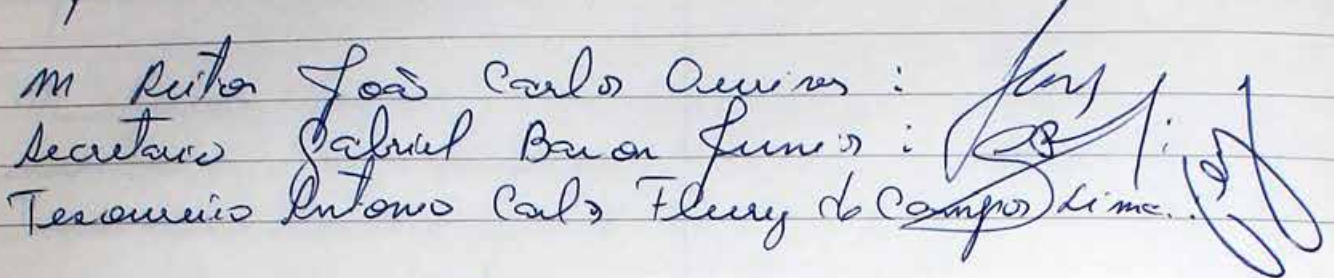 M Reitor João Carlos :
Secretario Gabriel Baron Junior :
Tesoureiro Antonio Carlos Fleury de Campos Lima.